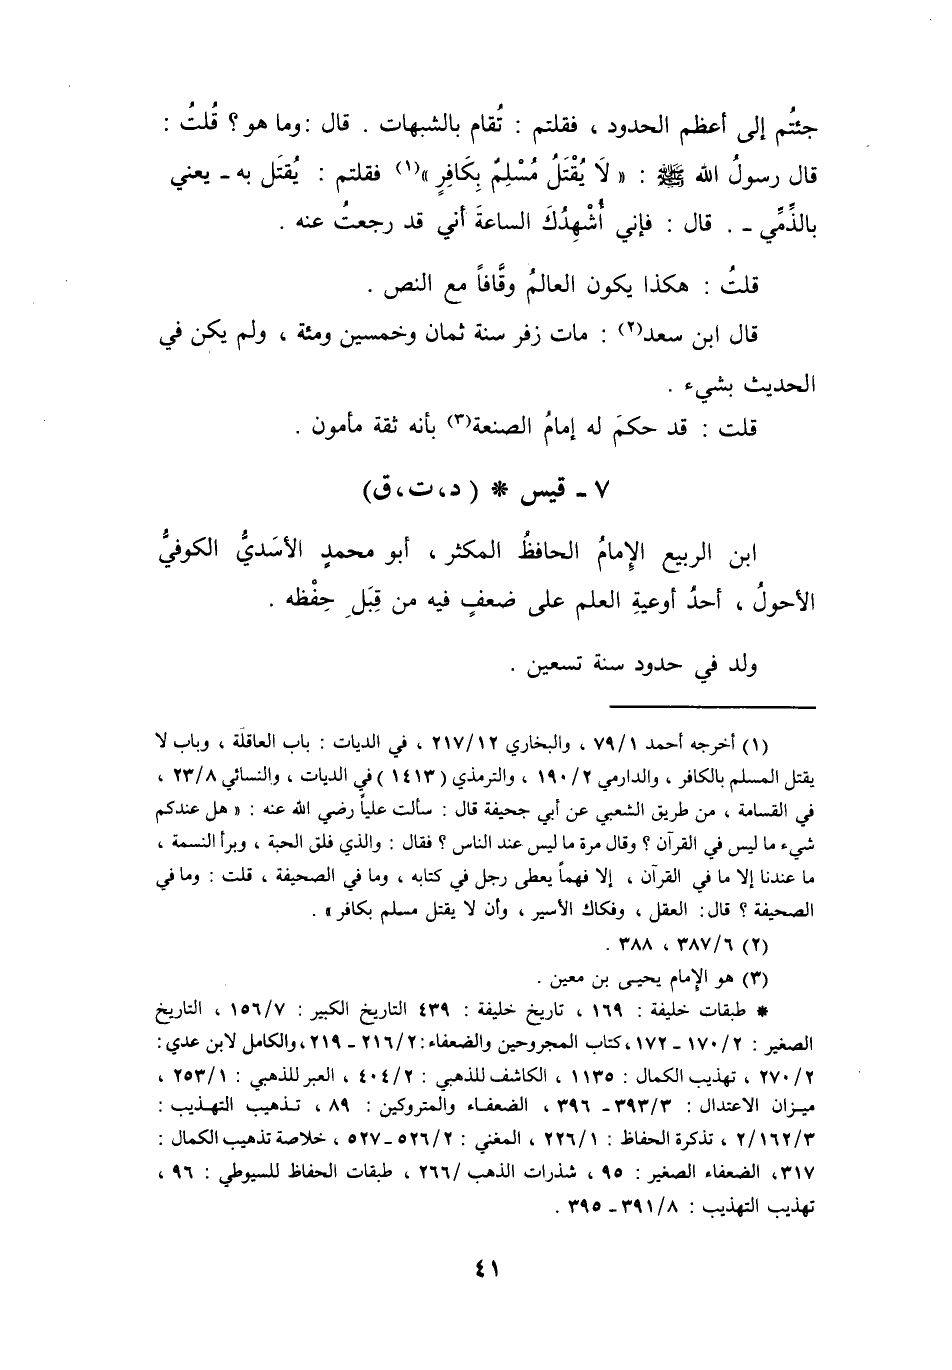 جئتُم إلى أعظم الحدود ، فقلتم : تُقام بالشبهات . قال : وما هو ؟ قُلتُ :
قال رسولُ الله ﷺ : « لَا يُقْتَلُ مُسْلِمٌ بِكَافِرٍ »(١) فقلتم : يُقتَل به ـ يعني
بالذِّمِّي ـ . قال : فإني أُشْهِدُكَ الساعةَ أني قد رجعتُ عنه .
قلتُ : هكذا يكون العالمُ وقَّافاً مع النص .
قال ابن سعد(٢) : مات زفر سنة ثمان وخمسين ومئة ، ولم يكن في
الحديث بشيء .
قلت : قد حكمَ له إمامُ الصنعة(٣) بأنه ثقة مأمون .
٧ ـ قيس * ( د، ت، ق)
ابن الربيع الإِمامُ الحافظُ المكثر ، أبو محمدٍ الأسَديُّ الكوفيُّ
الأحولُ ، أحدُ أوعيةِ العلم على ضعفٍ فيه من قِبَلِ حِفْظه .
ولد في حدود سنة تسعين .
(١) أخرجه أحمد ٧٩/١ ، والبخاري ٢١٧/١٢ ، في الديات : باب العاقلة ، وباب لا
يقتل المسلم بالكافر ، والدارمي ١٩٠/٢ ، والترمذي ( ١٤١٣ ) في الديات ، والنسائي ٢٣/٨ ،
في القسامة ، من طريق الشعبي عن أبي جحيفة قال : سألت علياً رضي الله عنه : « هل عندكم
شيء ما ليس في القرآن ؟ وقال مرة ما ليس عند الناس ؟ فقال : والذي فلق الحبة ، وبرأ النسمة ،
ما عندنا إلا ما في القرآن ، إلا فهماً يعطى رجل في كتابه ، وما في الصحيفة ، قلت : وما في
الصحيفة ؟ قال : العقل ، وفكاك الأسير ، وأن لا يقتل مسلم بكافر » .
(٢) ٣٨٧/٦ ، ٣٨٨ .
(٣) هو الإِمام يحيى بن معين .
* طبقات خليفة : ١٦٩ ، تاريخ خليفة : ٤٣٩ التاريخ الكبير : ١٥٦/٧ ، التاريخ
الصغير : ١٧٠/٢ ـ ١٧٢ ، كتاب المجروحين والضعفاء : ٢١٦/٢ ـ ٢١٩ ، والكامل لابن عدي :
٢٧٠/٢ ، تهذيب الكمال : ١١٣٥ ، الكاشف للذهبي : ٤٠٤/٢ ، العبر للذهبي : ٢٥٣/١ ،
ميزان الاعتدال : ٣٩٣/٣ ـ ٣٩٦ ، الضعفاء والمتروكين : ٨٩ ، تذهيب التهذيب :
٢/١٦٢/٣ ، تذكرة الحفاظ : ٢٢٦/١ ، المغني : ٥٢٦/٢ ـ ٥٢٧ ، خلاصة تذهيب الكمال :
٣١٧ ، الضعفاء الصغير : ٩٥ ، شذرات الذهب /٢٦٦ ، طبقات الحفاظ للسيوطي : ٩٦ ،
تهذيب التهذيب : ٣٩١/٨ ـ ٣٩٥ .
٤١